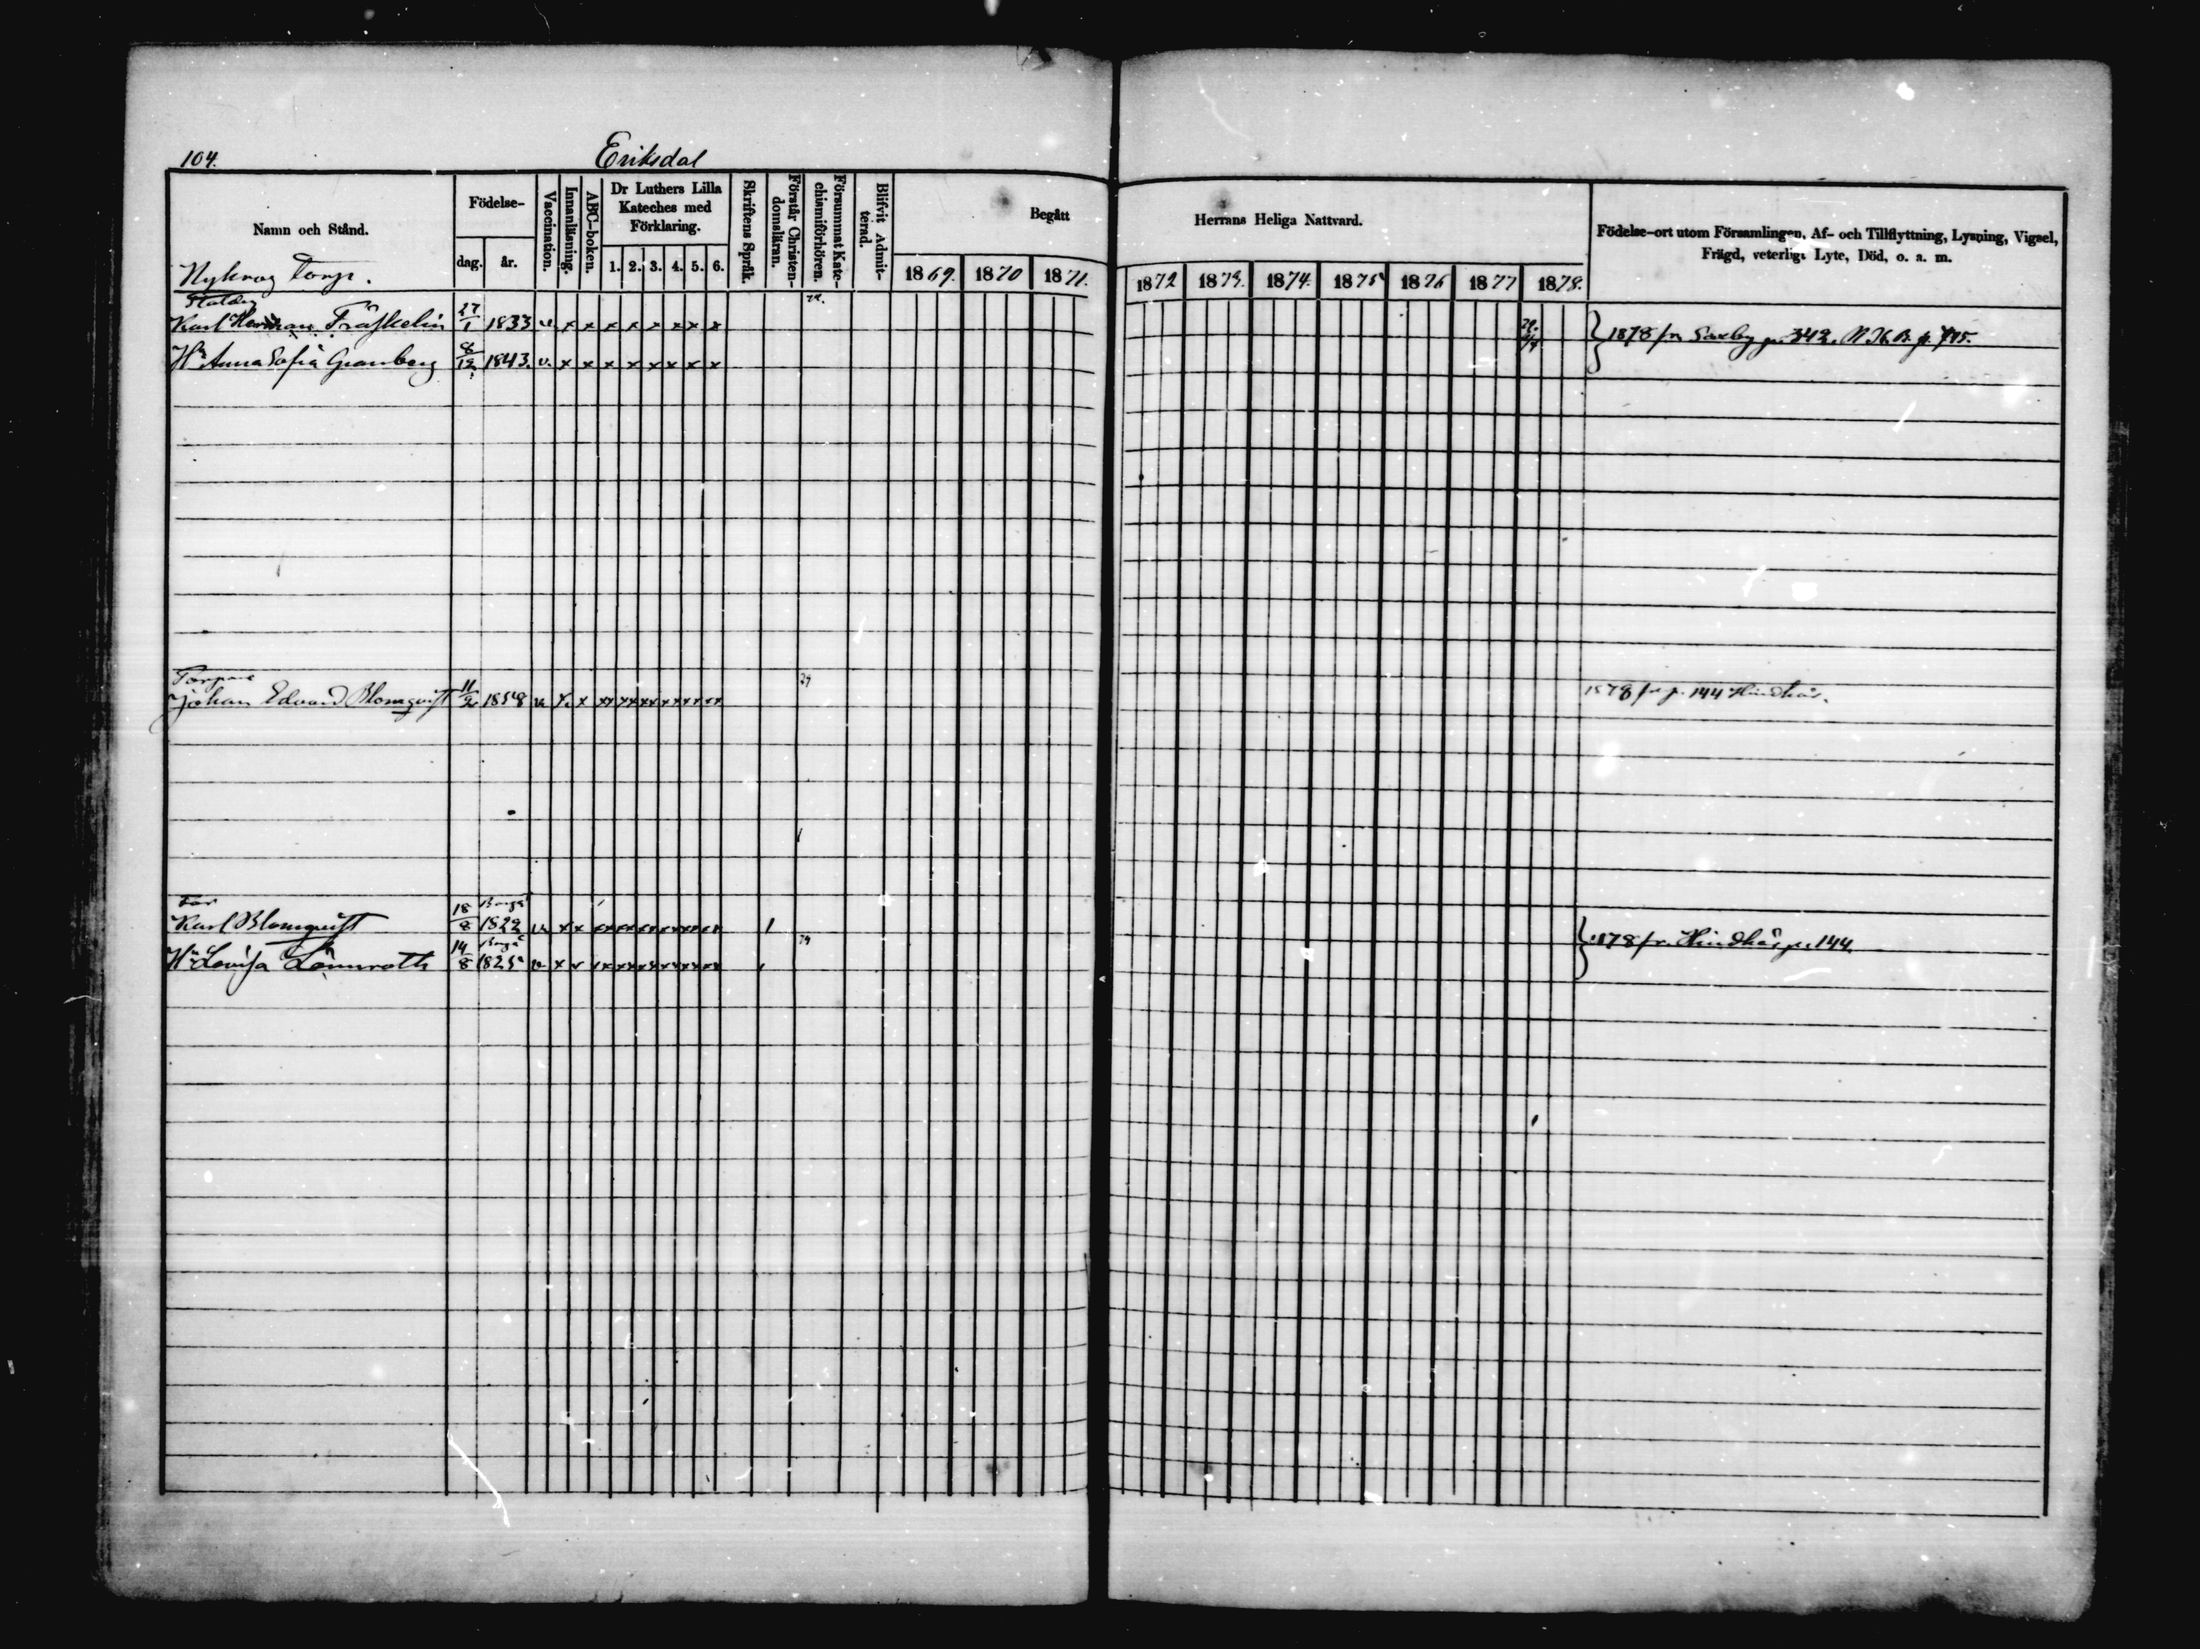 104.
Eriksdal
Namn och Stånd.
Födelse-
dag.
år.
Vaccination.
Innanläsning.
ABC-boken.
Dr Luthers Lilla
Kateches med
Förklaring.
1. 2. 3. 4. 5. 6.
Skriftens Språk.
Förstår Christen-
domsläran.
Försummat Kate-
chismiförhören.
Blifvit Admit-
terad.
Begått
Herrans Heliga Nattvard.
1869. 1870 1871.
1872 1873. 1874. 1875 1876 1877 1878.
Födelse-ort utom Församlingen, Af- och Tillflyttning, Lysning, Vigsel,
Frägd, veterligt Lyte, Död, o. a. m.
Torp.
Karl Herman 27/1 1833 v. x x x x x x x x
1878 fr Saxby p. 342. N.K.B. p.
Hu Anna Sofia Granberg 8/12 1843. v. x x x x x x x x
Johan Edvard Blomqvist 11/2 1858 v x x xx xx xx xx xx xx
1878 fr p. 144 Hindhår.
Borgå
Karl Blomqvist 18/8 1822 v x x xx xx xx xx xx xx
Borgå
Hu Lovisa Lönnroth 14/8 1825 v x x xx xx xx xx xx xx
1878 fr. Hindhår p. 144